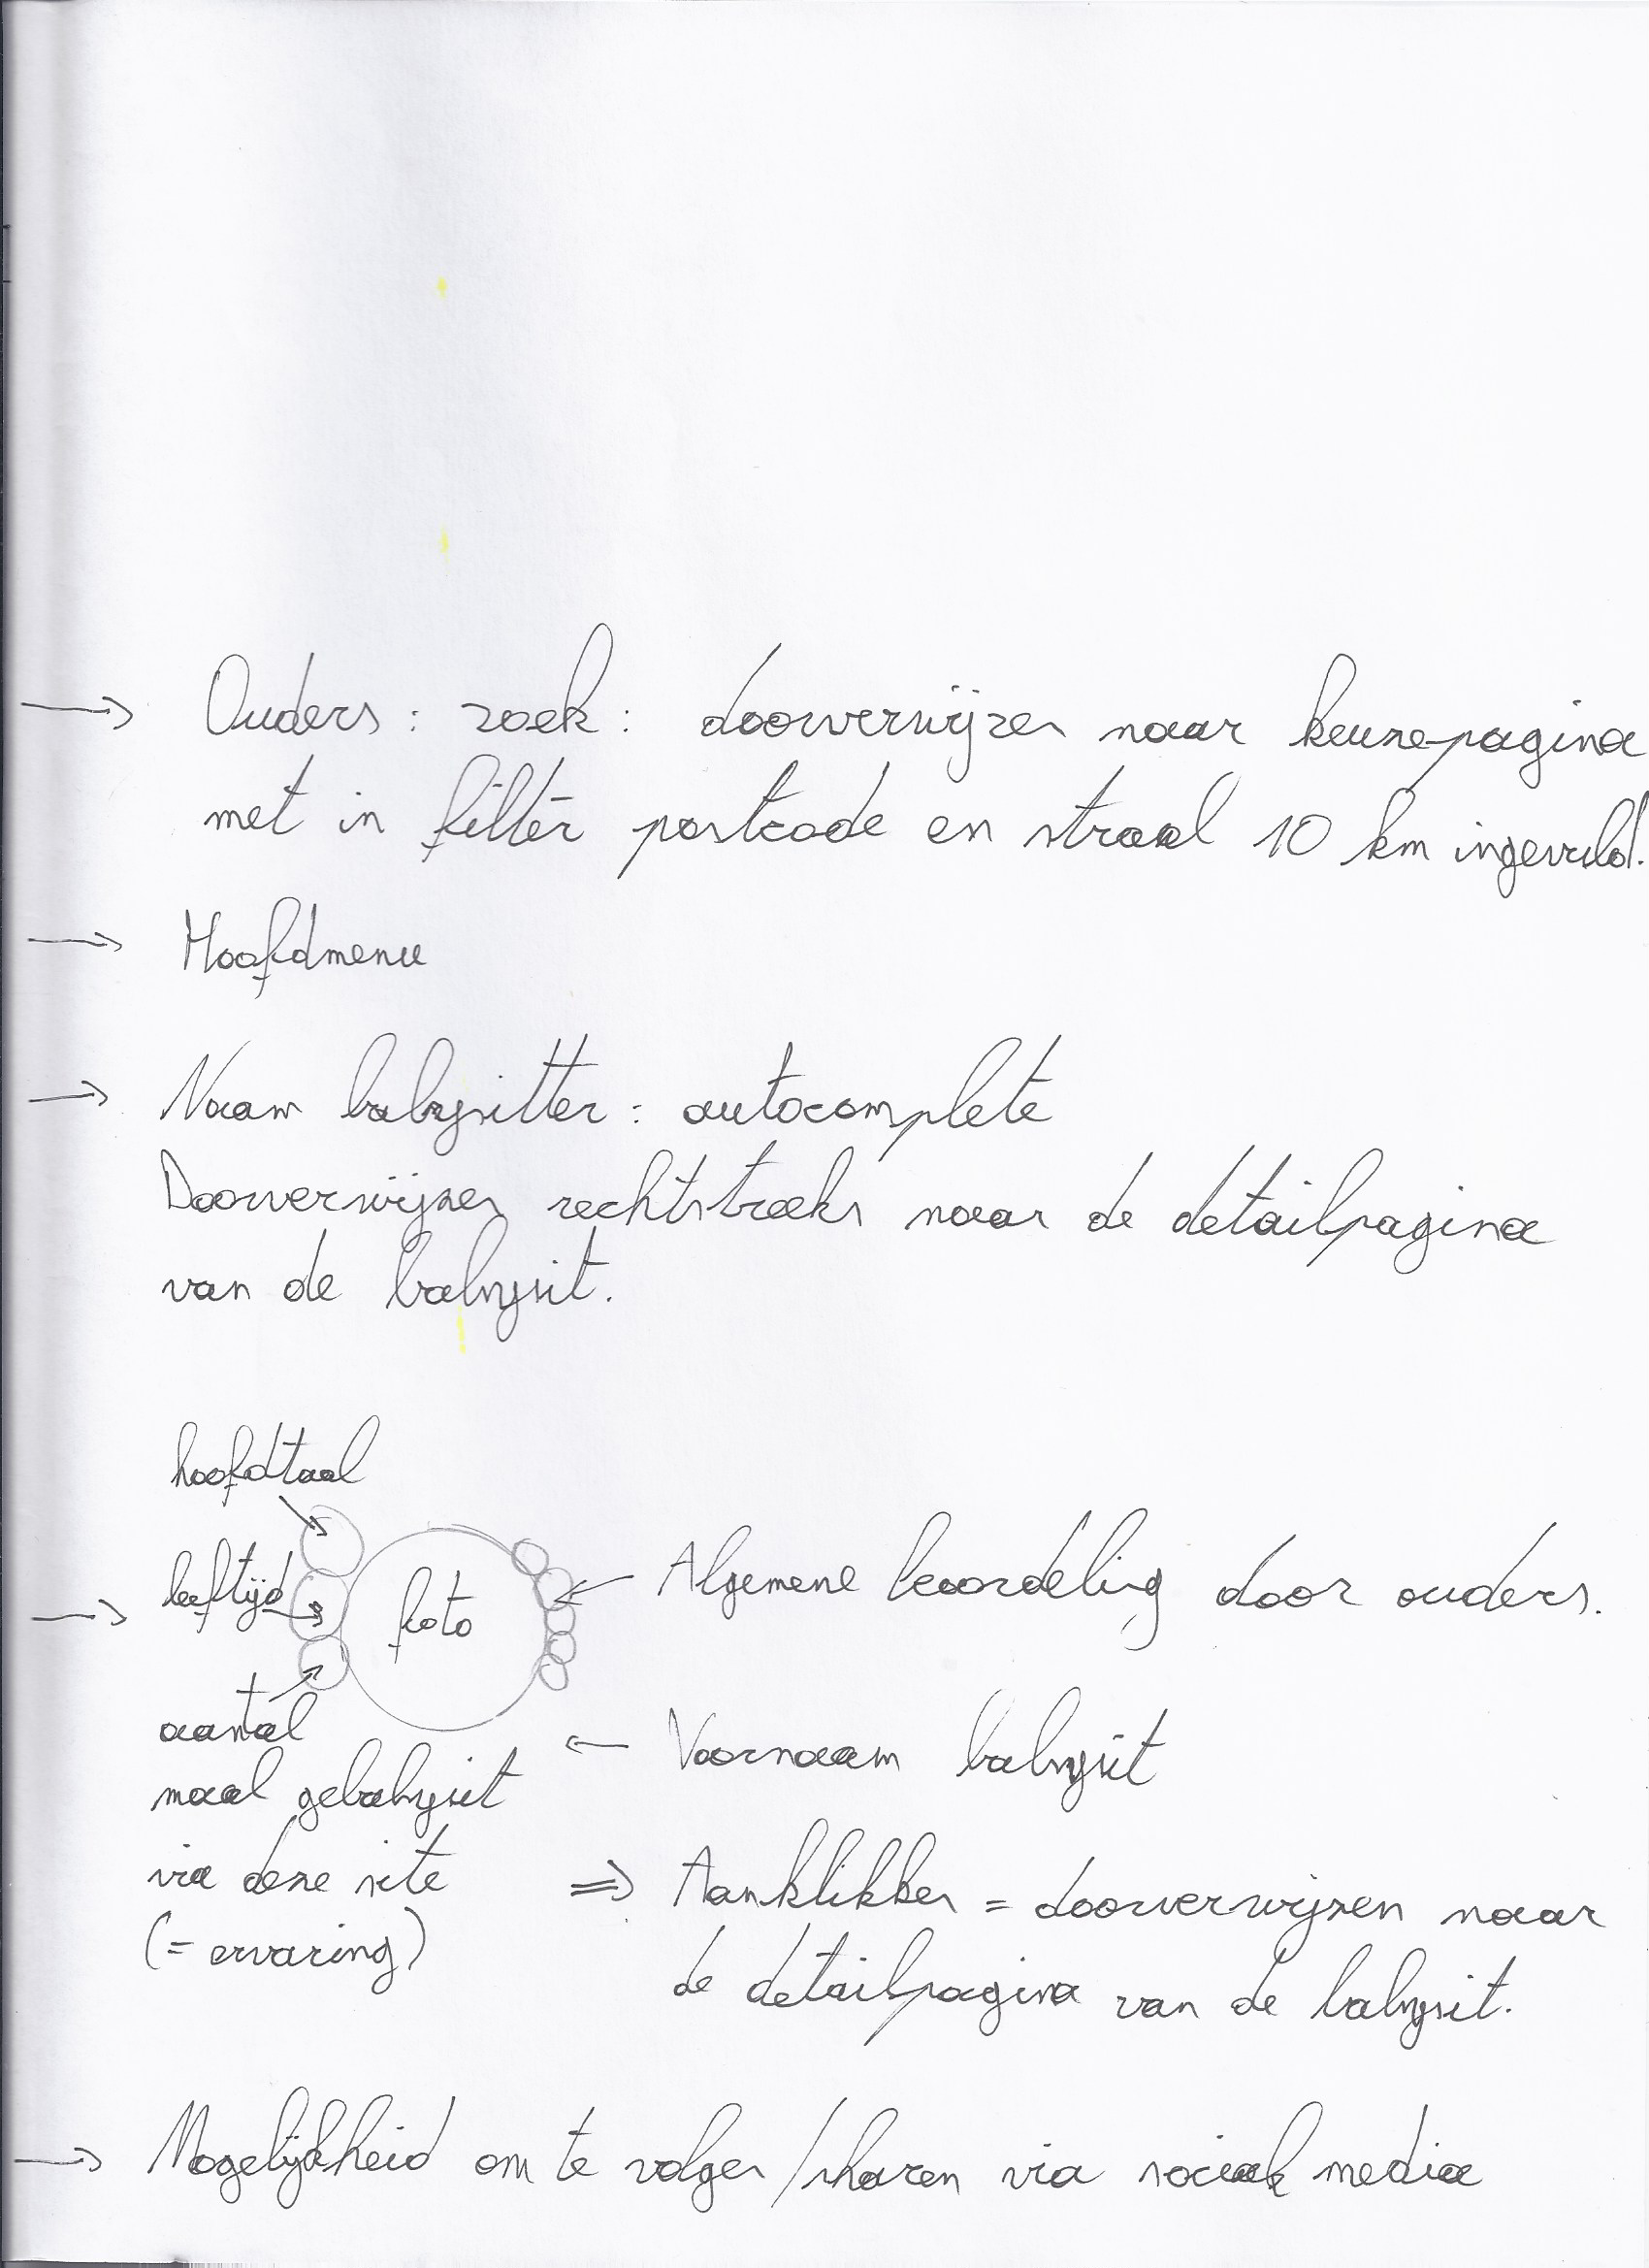 → Ouders : zoek : doorverwijzen naar keuzepagina
met in filter postcode en straal 10 km ingevuld.
→ Hoofdmenu
→ Naam babysitter : autocomplete
Doorverwijzen rechtstreeks naar de detailpagina
van de babysit.
hoofdtaal
leeftijd
→ foto ← Algemene beoordeling door ouders.
aantal
maal gebabysit
via deze site
(= ervaring)
← Voornaam babysit
⇒ Aanklikken = doorverwijzen naar
de detailpagina van de babysit.
→ Mogelijkheid om te volgen / sharen via sociale media